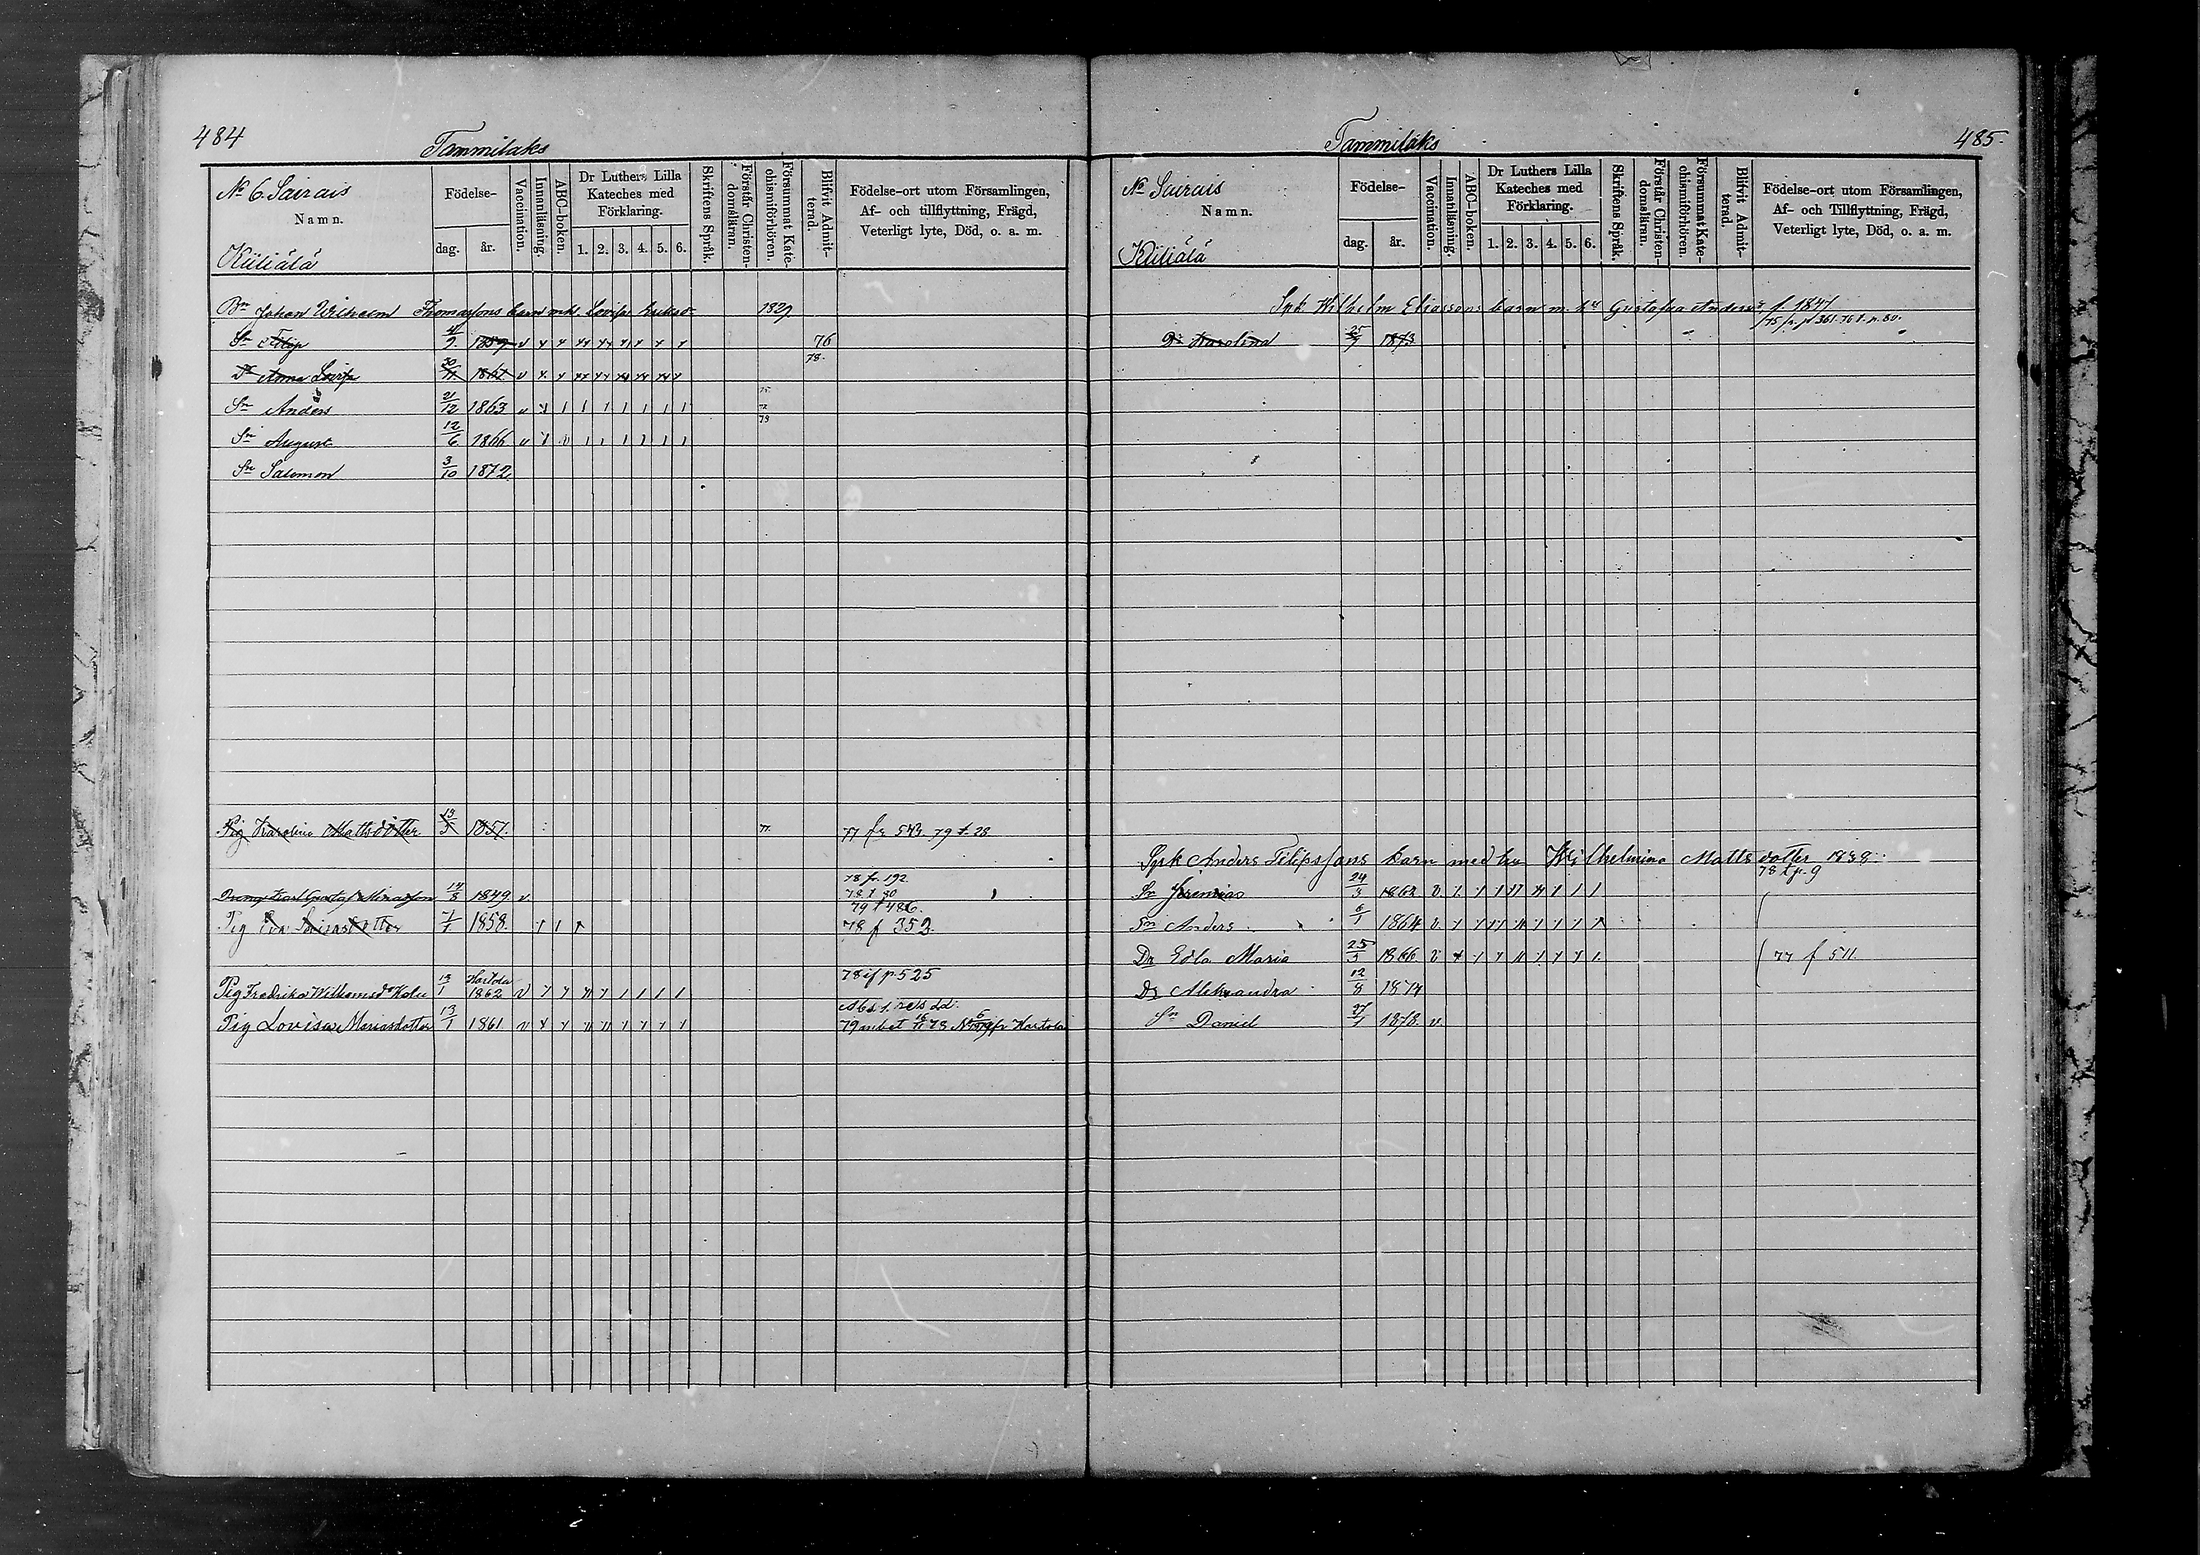 484
Tammilaks
No 6. Sairais
Namn.
Kiiliälä
Födelse-
dag. år.
Vaccination.
Innanläsning.
ABC-boken.
Dr Luthers Lilla Kateches med Förklaring.
1. 2. 3. 4. 5. 6.
Skriftens Språk.
Förstår Christendomsläran.
Försummat Katechismiförhören.
Blifvit Admitterad.
Födelse-ort utom Församlingen,
Af- och tillflyttning, Frägd,
Veterligt lyte, Död, o. a. m.
Bn Johan Wilhelm Thomassons barn 1829
Sn Filip 1859 76
Dr Anna Lovisa 30/11 1861 78.
Sn Anders 21/12 1863
Sn August 12/6 1866
Sn Salomon 3/10 1872
Pig Karolina Mattsdotter 1857. 77. 77 fr 543. 79 t. 28
78 fr. 192
78 t 80
Dräng Karl Gustaf 14/8 1849 v.
79 t 486.
Pig Eva 1858. 78 f 352
78 if p. 525
Pig Fredrika 13/1 Hartola 1862
Pig Lovisa Mariasdotter 13/1 1861 fr Hartola
Tammilaks
485
No Sairais
Namn.
Kiiliälä
Födelse-
dag. år.
Vaccination.
Innanläsning.
ABC-boken.
Dr Luthers Lilla Kateches med Förklaring.
1. 2. 3. 4. 5. 6.
Skriftens Språk.
Förstår Christendomsläran.
Försummat Katechismiförhören.
Blifvit Admitterad.
Födelse-ort utom Församlingen,
Af- och Tillflyttning, Frägd,
Veterligt lyte, Död, o. a. m.
Spk Wilhelm Eliassons barn m. hu Gustafva f. 1847
75 fr. p 361. 76 t. p. 80.
Dr Karolina 25/7 1873
Spk Anders Filipssons barn med hu Wilhelmina Matts dotter 1838
78 t p. 9
Sn Jeremias 24/3 1862
Sn Anders 6/1 1864
Dr Edla Maria 25/3 1866 77 f 511
Dr Aleksandra 12/8 1874
Sn Daniel 27/1 1878. v.